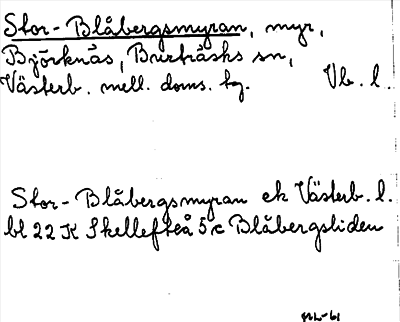 Stor-Blåbergsmyran, myr,
Björknäs, Burträsks sn,
Västerb. mell. doms. tg. Vb. l.
Stor-Blåbergsmyran ek Västerb. l.
bl 22 K Skellefteå 5c Blåbergsliden